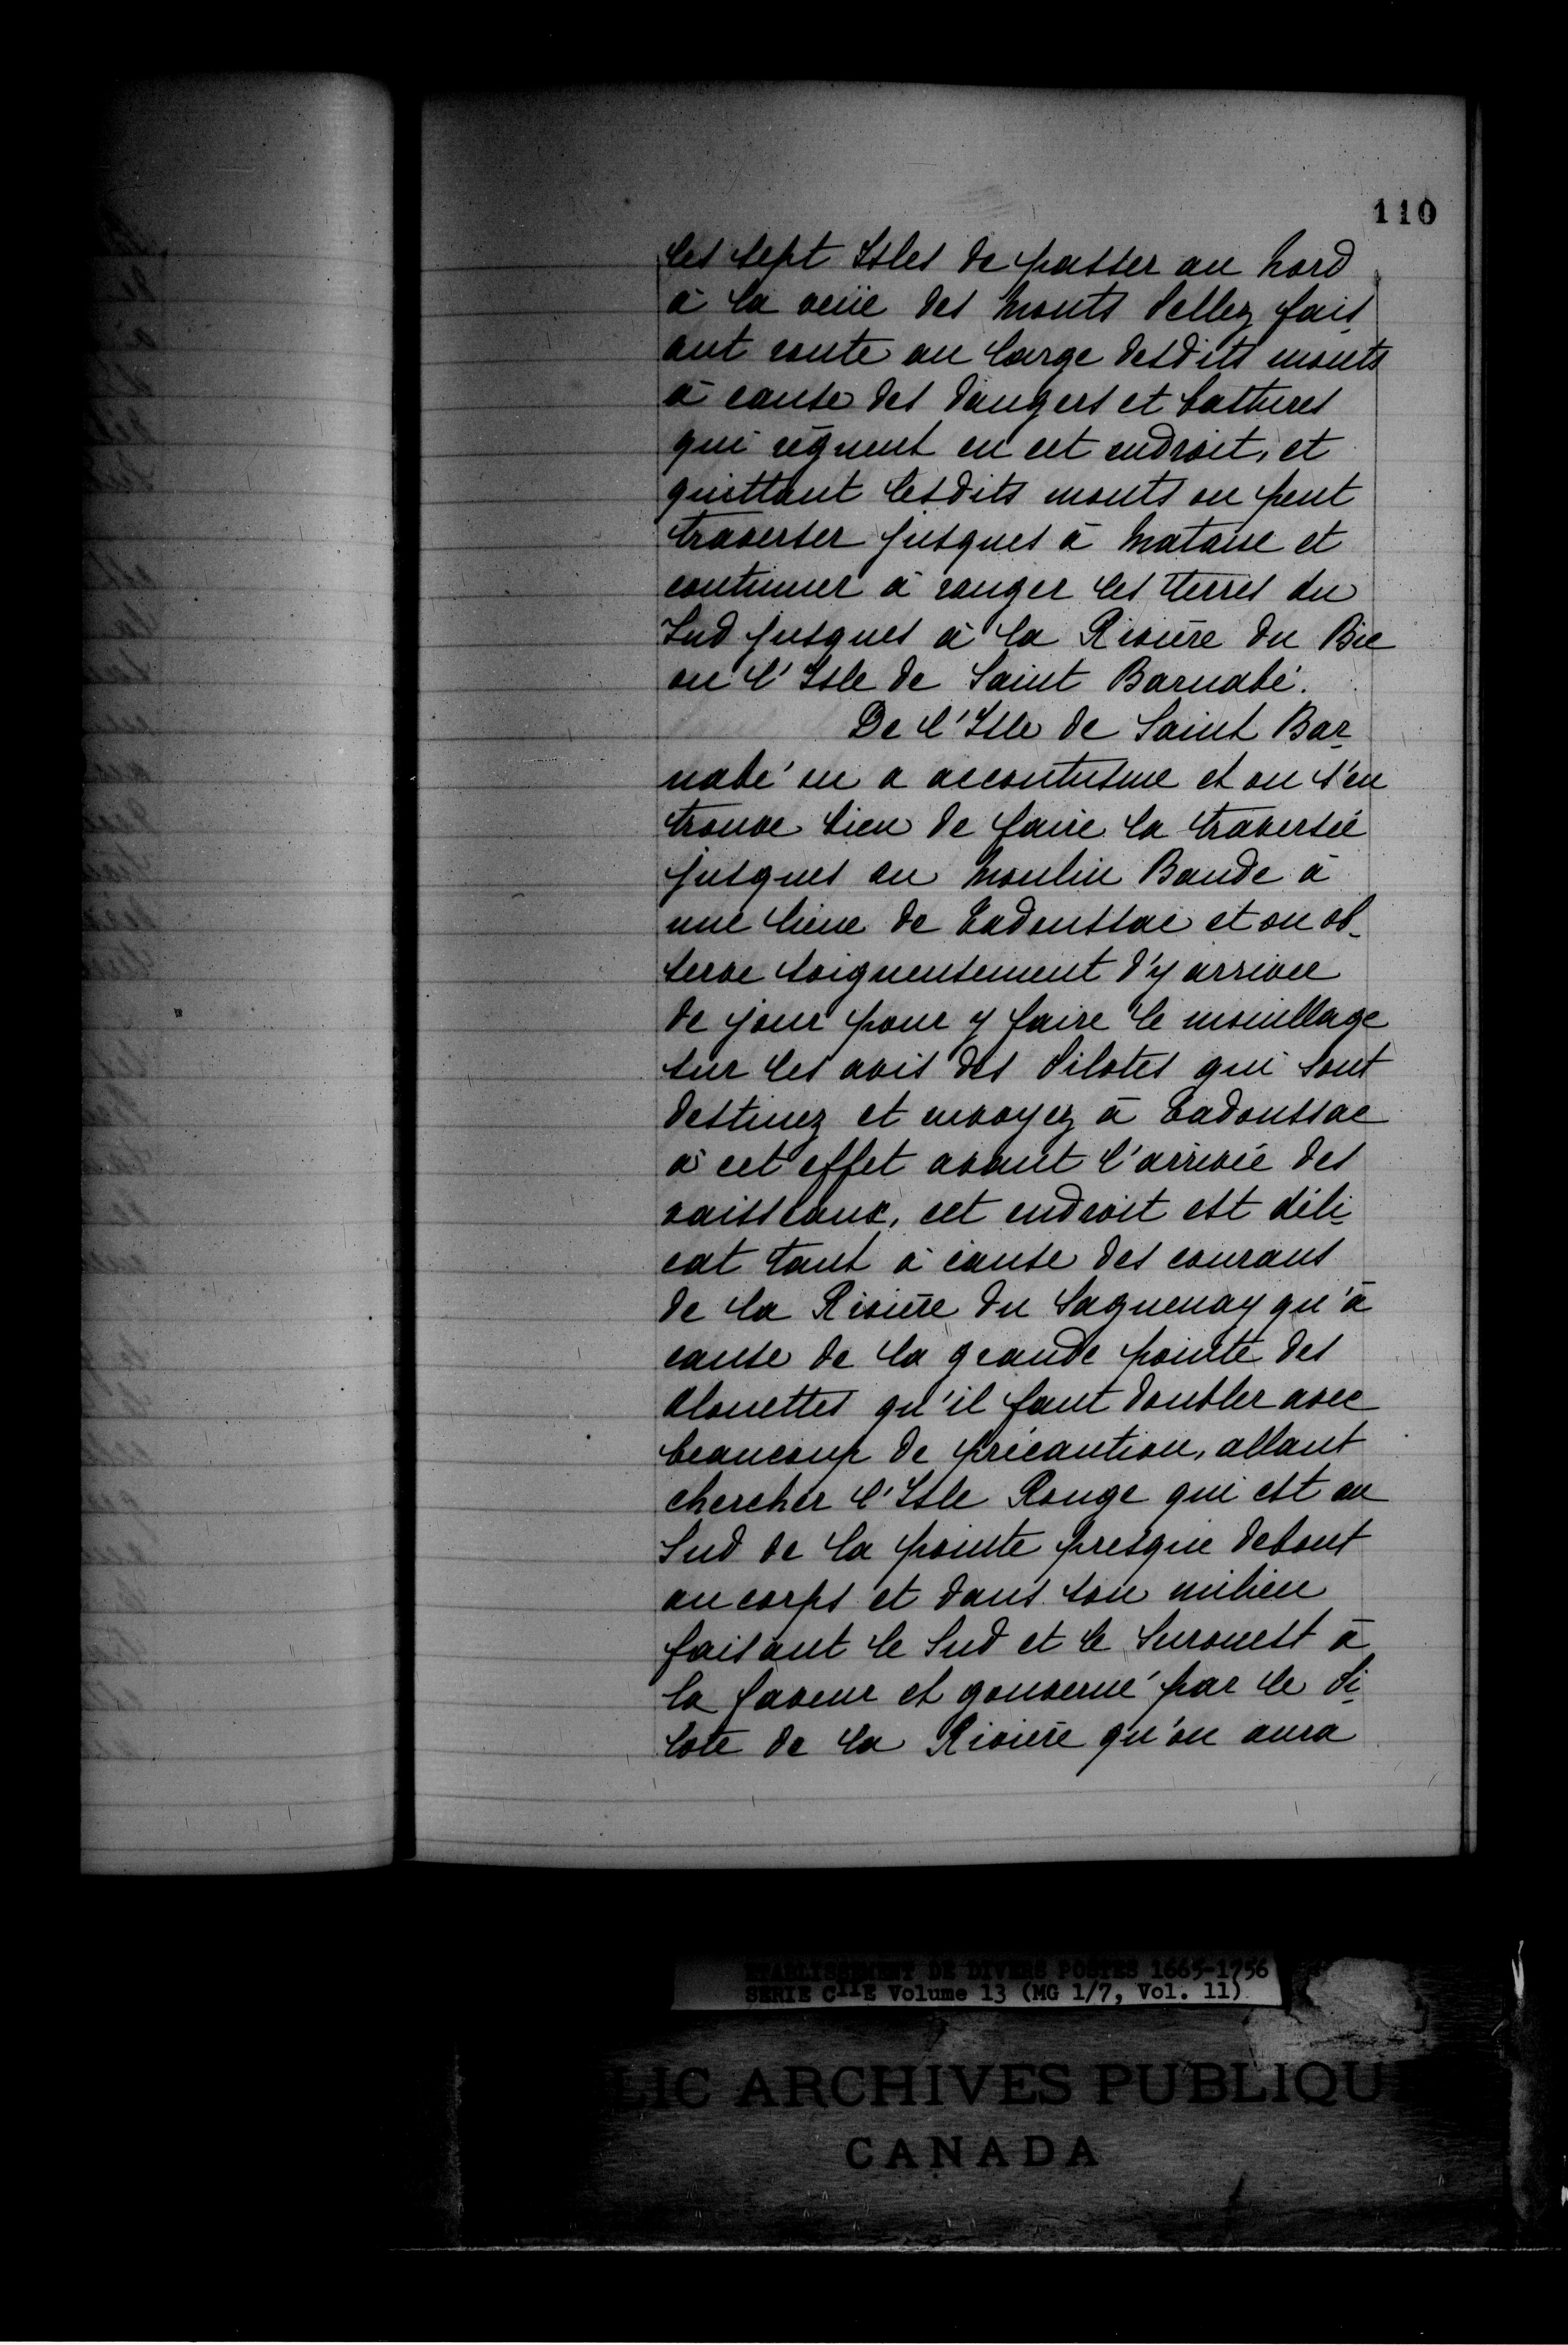 110
les sept Isles de passer au Nord
à la veüe des Monts Pellez fais
ant route au large desdits monts
à cause des dangers et battures
qui règnent en cet endroit, et
quittant lesdits monts on peut
traverser jusques à Matane et
continuer à ranger les terres du
Sud jusques à la Rivière du Bic
ou l'Isle de Saint Barnabé.
De l'Isle de Saint Bar-
nabé on a accoutusmé et on s'en
trouve bien de faire la traversée
jusques au Moulin Baude à
une lieue de Tadoussac et on ob-
serve soigneusement d'y arriver
de jour pour y faire le mouillage
sur les avis des Pilotes qui sont
destinez et envoyez à Tadoussac
à cet effet avant l'arrivée des
vaisseaux, cet endroit est déli-
cat tant à cause des courans
de la Rivière du Saguenay qu'à
cause de la grande pointe des
Alouettes qu'il faut doubler avec
beaucoup de précaution, allant
chercher l'Isle Rouge qui est au
Sud de la pointe presque debout
au corps et dans son milieu
faisant le Sud et le Surouest à
la faveur et gouverné par le Pi-
lote de la Rivière qu'on aura
ETABLISSEMENT DE DIVERS POSTES 1665-1756
SERIE C11E Volume 13 (MG 1/7, Vol. 11)
LIC ARCHIVES PUBLIQU
CANADA